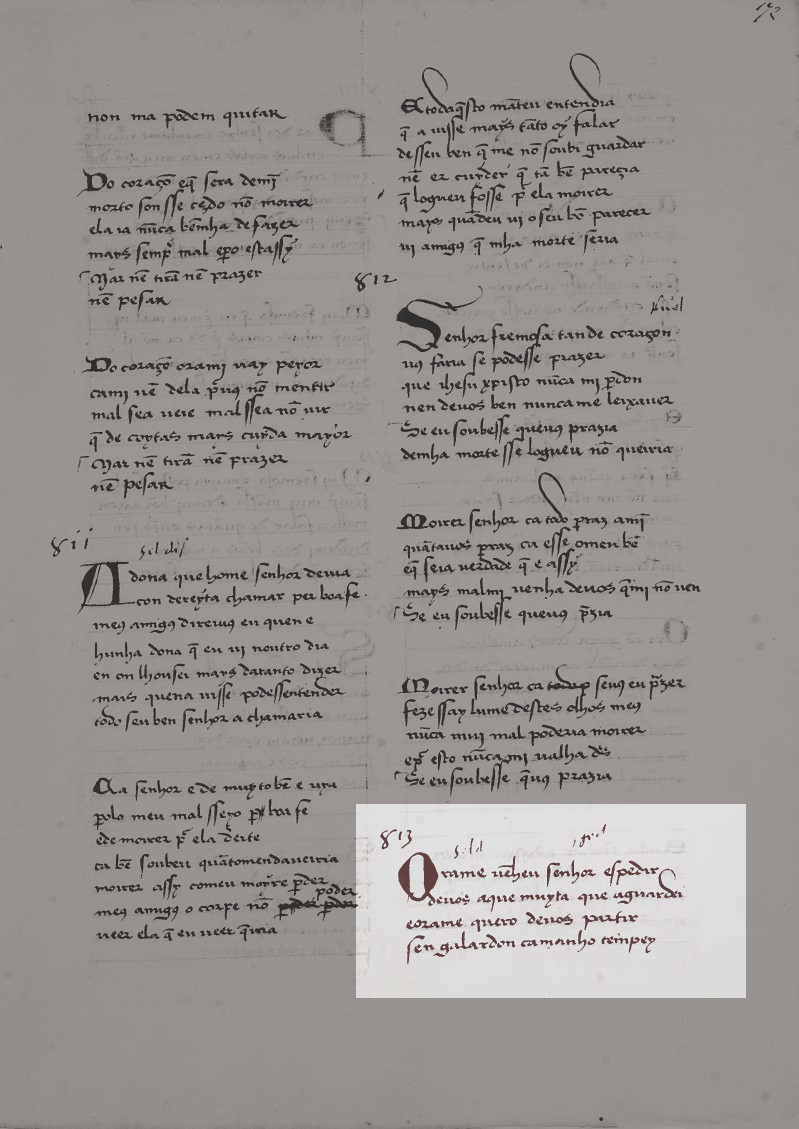 non ma podem quitar
Do coraçõ eq̃ sera demĩ
morto son sse çedo nõ moirer
ela ia nũca bẽ mha defazer
mays semp̃ mal epo estassy
Mar nẽ tirã nẽ prazer
nẽ pesar
Do coraçõ orami vay peyor
cami uẽ dela
mal sea ueie mal ssea nõ uir
q̃ de coytas mays
Mar nẽ tirã nẽ prazer
nẽ pesar
811
A dona que home senhor deuia
con dereyta chamar per boa fe
meus amigus direiuus eu quen e
hunha dona q̃ eu ui noutro dia
en con lhousei mays datanto dizer
mais quena uisse podessentender
todo seu ben senhor a chamaria
Ca senhor e de muyto bẽ e uya
polo meu mal sseyo boa fe
ede moirer
ca bẽ soubeu quãtomendaueiria
moirer assy comeu
meus amigus o corpe nõ poder
ueer ela q̃ eu ueer
E todaq̃sto mãteu entendia
q̃ a uisse mays tãto oy falar
desseu ben q̃ me nõ soubi guardar
nẽ er q̃ tã bẽ pareçia
q̃ logueu fosse p̃ ela moirer
mays quãdeu ui o seu bẽ parecer
ui amigus q̃ mha morte seria
812
Senhor fremosa tan de coraçon
uus faria se podesse prazer
que ihesu xpisto nũca mi pdon
nen deuos ben nunca me leixauer
Se eu soubesse queuus prazia
demha morte sse logueu nõ queiria
Moirer senhor ca todo praz amĩ
quãtauos praz ca esse omen bẽ
eq̃ seia uerdade q̃ e assy
mays malmi uenha deuos q̃mi nõ uen
Se eu soubesse queuus p̃zia
Moirer senhor ca seuus eu p̃zer
fezessay lume destes olhos meus
nũca mui mal poderia moirer
esto nũcami ualha ds̃
Se eu soubesse q̃uus prazia
813
Orame uẽheu senhor espedir
deuos aque muyta que aguardei
eorame quero deuos partir
sen galardon camanho tempey